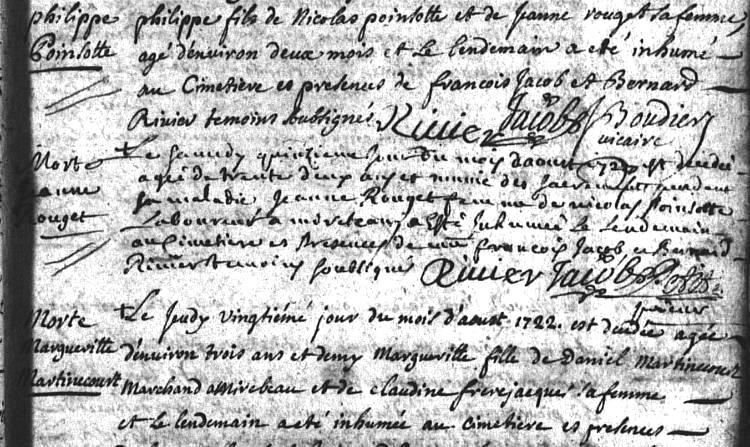 philippe
Poinsotte
philippe fils de Nicolas poinsotte et de Jeanne rouget sa femme,
agé d'environ deux mois et Le lendemain a eté inhumé
au Cimetiere es presences de francois Jacob et Bernard
Rivier temoins soubsignés Rivier Jacob Boudier
vicaire
Morte
anne
ouget
Le samedy quinzieme jour du mois daoust 172 est decedeé
ageé de trente deux ans et munie des sacrements pendant
sa maladie Jeanne Rouget femme de nicolas Poinsotte
Laboureur a mireteau a Esté Inhumeé Le Lendemain
au Cimetiere es Presences de francois Jacob et Bernard
Rivier temoins soubsignés Rivier Jacob
prieur
Morte
Margueritte
Martinecourt
Le Jeudy vingtiémé jour du mois d'aoust 1722. est decedée agée
d'environ trois ans et demy Margueritte fille de Daniel Martinecourt
Marchand a Mirebeau et de claudine frerejacques sa femme
et Le lendemain a eté inhumée au cimetiere es presences